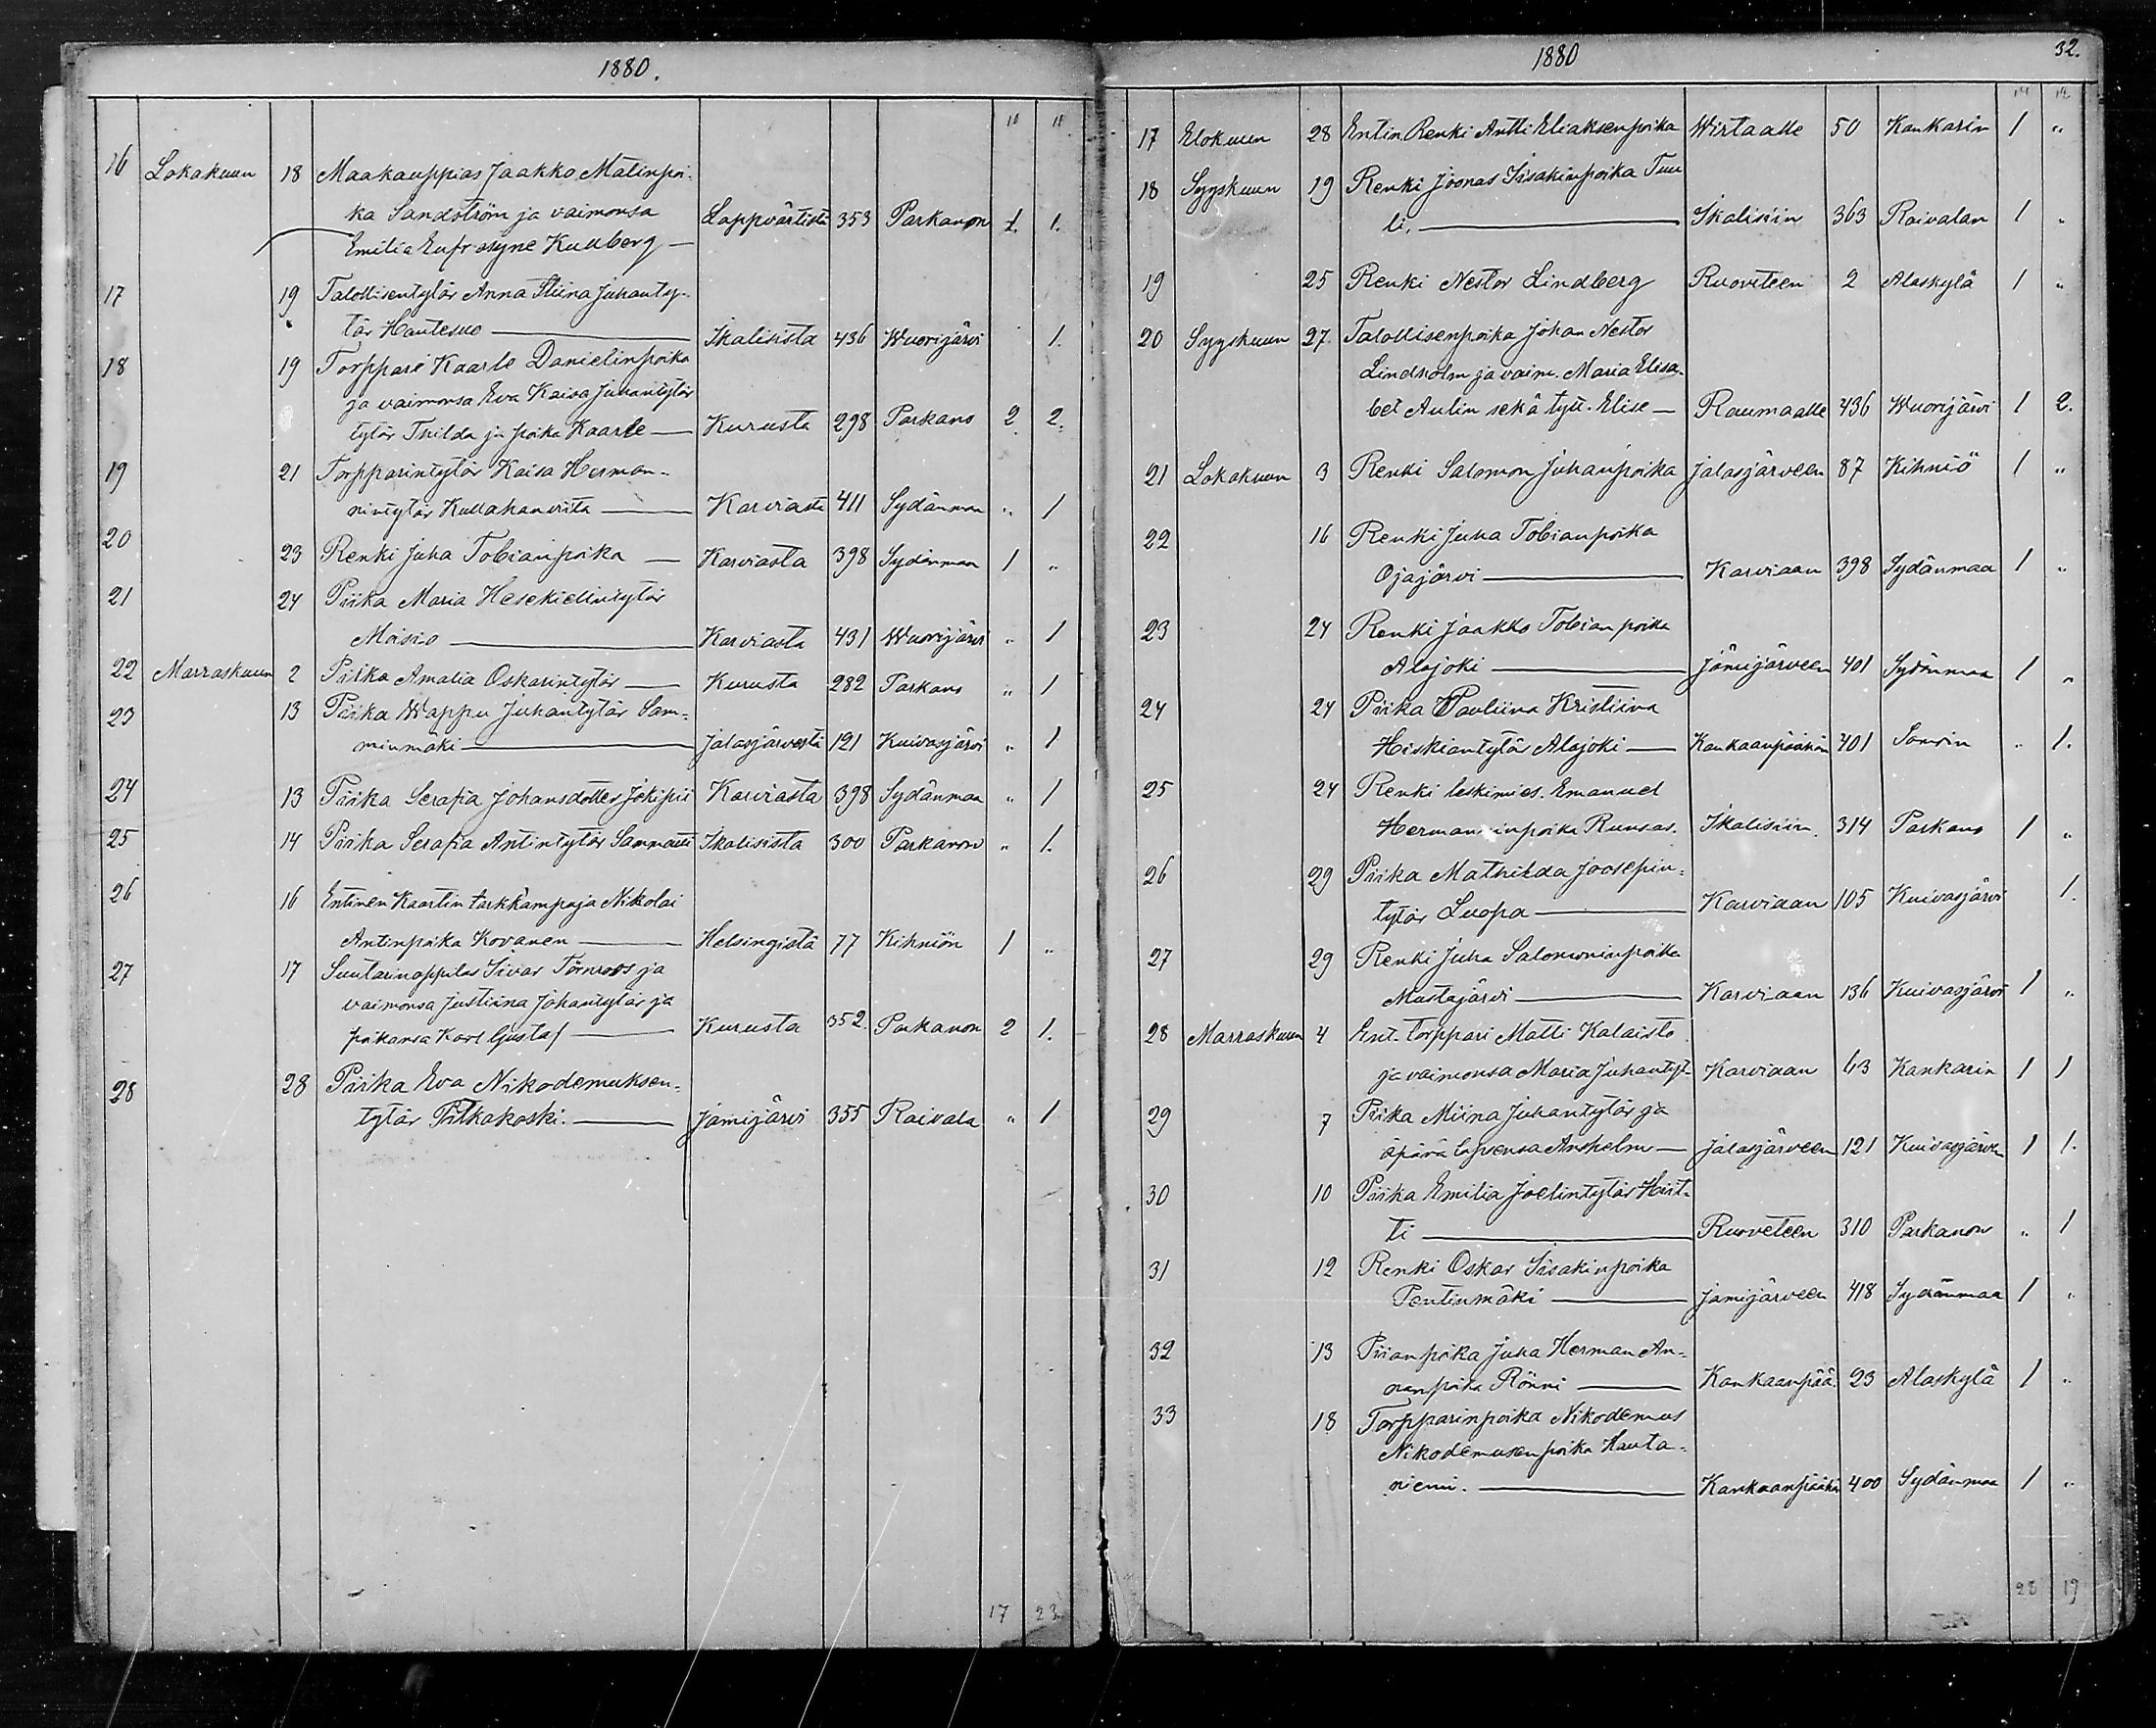 1880.
10 11
16 Lokakuun 18 Maakauppias Jaakko Matinpoi-
ka Sandström ja vaimonsa Lappväristä 353 Parkanon 1. 1.
Emilia Eufrosyne Kullberg —
17 19 Talollisentytär Anna Stiina Juhanty-
tär Hautesuo — Ikalisista 436 Wuorijärvi 1.
18 19 Torppari Kaarle Danielinpoika
ja vaimonsa Eva Kaisa Juhantytär
tytär Thilda ja poika Kaarle — Kurusta 298 Parkano 2 2.
19 21 Torpparintytär Kaisa Herman-
nintytär — Karviasta 411 Sydänmaa " 1
20 23 Renki Juha Tobianpoika — Karviasta 398 Sydänmaa 1 "
21 24 Piika Maria Hesekielintytär
Moisio — Karviasta 431 Wuorijärvi " 1
22 Marraskuun 2 Piika Amalia Oskarintytär — Kurusta 282 Parkano " 1
23 13 Piika Wappu Juhantytär Sam-
minmäki — Jalasjärvestä 121 Kuivasjärvi " 1
24 13 Piika Serafia Johansdotter Jokipii Karviasta 398 Sydänmaa " 1
25 14 Piika Serafia Antintytär Sammatti Ikalisista 300 Parkanon " 1.
26 16 Entinen Kaartin tarkkampuja Nikolai
Antinpoika Kovanen — Helsingistä 77 Kihniön 1 "
27 17 Suutarinoppilas Iivar Törnroos ja
vaimonsa Justiina Johantytär ja
poikansa Karl Gustaf — Kurusta 352. Parkanon 2 1.
28 28 Piika Eva Nikodemuksen-
tytär Pitkäkoski. — Jämijärvi 355 Raivala " 1
17 23
1880 32.
14 12
17 Elokuun 28 Entin Renki Antti Eliaksenpoika Wirtaalle 50 Kankarin 1 "
18 Syyskuun 19 Renki Joonas Iisakinpoika Tuu
li. — Ikalisiin 363 Raivalan 1 "
19 25 Renki Nestor Lindberg Ruoveteen 2 Alaskylä 1 "
20 Syyskuun 27. Talollisenpoika Johan Nestor
Lindholm ja vaim. Maria Elisa-
bet Aulin sekä tytt. Elise — Raumaalle 436 Wuorijärvi 1 2.
21 Lokakuun 3 Renki Salomon Juhanpoika Jalasjärveen 87 Kihniö 1 "
22 16 Renki Juha Tobianpoika
Ojajärvi — Karviaan 398 Sydänmaa 1 "
23 24 Renki Jaakko Tobianpoika
Alajoki — Jämijärveen 401 Sydänmaa 1 "
24 24 Piika Pauliina Kristiina
Hiskiantytär Alajoki — Kankaanpäähän 401 " 1.
25 24 Renki leskimies. Emanuel
Hermanninpoika Ruusas. Ikalisiin. 314 Parkano 1 "
26 29 Piika Mathilda Joosepin-
tytär Luopa — Karviaan 105 Kuivasjärvi 1.
27 29 Renki Juha Salomoninpoika
Mustajärvi — Karviaan 136 Kuivasjärvi 1 "
28 Marraskuun 4 Ent. torppari Matti Kalaisto
ja vaimonsa Maria Juhantyt. Karviaan 63 Kankarin 1 1
29 7 Piika Miina Juhantytär ja
äpärä lapsensa Anshelm — Jalasjärveen 121 Kuivasjärven 1 1.
30 10 Piika Emilia Joelintytär Hirt-
ti — Ruoveteen 310 Parkanon " 1
31 12 Renki Oskar Iisakinpoika
Pentinmäki — Jämijärveen 418 Sydänmaa 1 "
32 13 Piianpoika Juha Herman An-
nanpoika Rönni — Kankaanpää. 23 Alaskylä 1 "
33 18 Torpparinpoika Nikodemus
Nikodemusenpoika Hauta-
niemi. — Kankaanpäähän 400 Sydänmaa 1 "
20 19